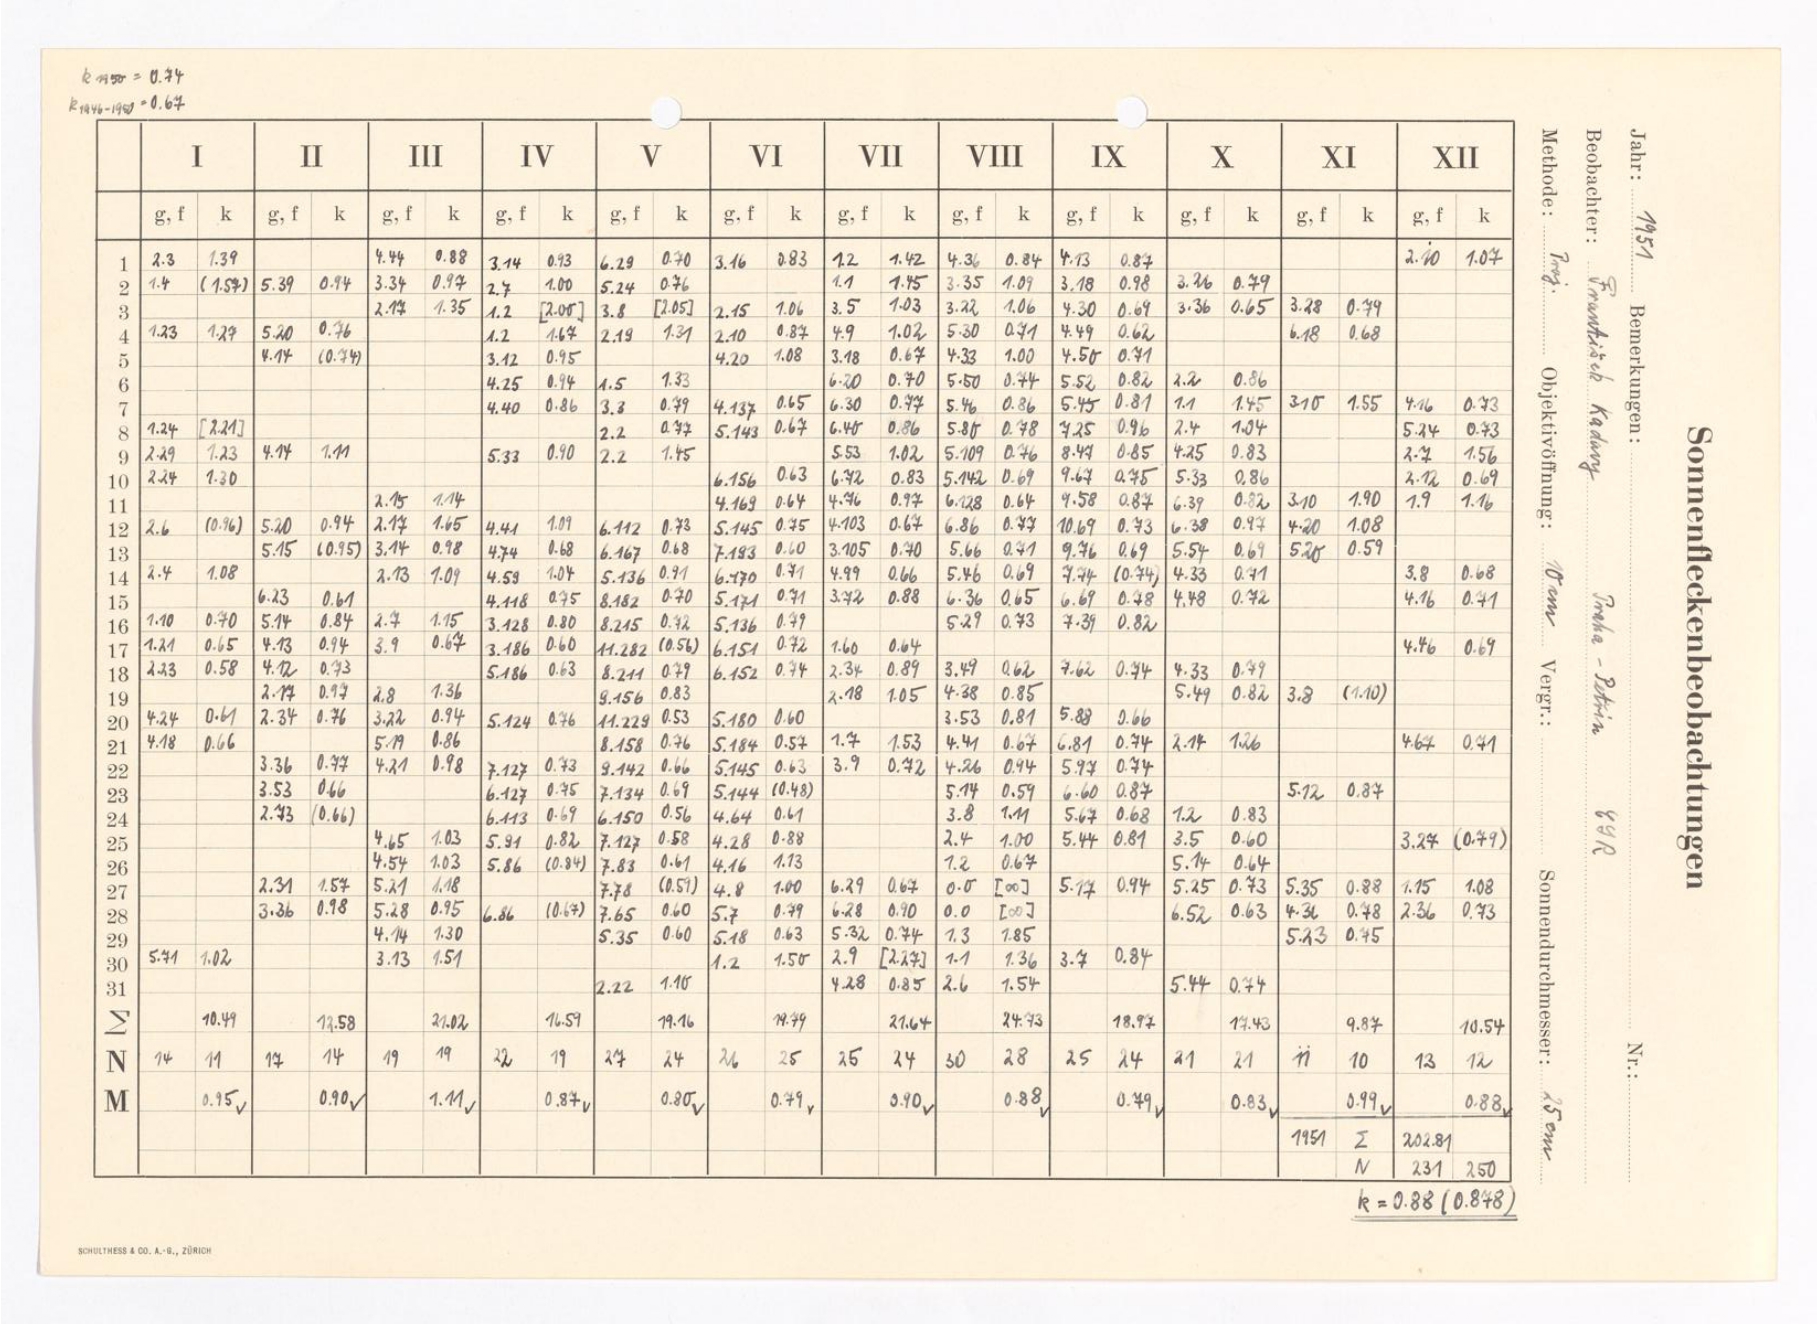 k 1950 = 0.74
k 1946-1950 = 0.67
I II III IV V VI VII VIII IX X XI XII
g, f k g, f k g, f k g, f k g, f k g, f k g, f k g, f k g, f k g, f k g, f k g, f k
1 2.3 1.39 4.44 0.88 3.14 0.93 6.29 0.70 3.16 0.83 1.2 1.42 4.36 0.84 4.13 0.87 2.10 1.07
2 1.4 (1.57) 5.39 0.94 3.34 0.97 2.7 1.00 5.24 0.76 1.1 1.45 3.35 1.09 3.18 0.98 3.26 0.79
3 2.17 1.35 1.2 [2.00] 3.8 [2.05] 2.15 1.06 3.5 1.03 3.22 1.06 4.30 0.69 3.36 0.65 3.28 0.79
4 1.23 1.27 5.20 0.76 1.2 1.67 2.19 1.31 2.10 0.87 4.9 1.02 5.30 0.71 4.49 0.62 6.18 0.68
5 4.14 (0.74) 3.12 0.95 4.20 1.08 3.18 0.67 4.33 1.00 4.50 0.71
6 4.25 0.94 1.5 1.33 6.20 0.70 5.50 0.74 5.52 0.82 2.2 0.86
7 4.40 0.86 3.3 0.79 4.137 0.65 6.30 0.77 5.46 0.86 5.45 0.81 1.1 1.45 3.10 1.55 4.16 0.73
8 1.24 [2.21] 2.2 0.77 5.143 0.67 6.40 0.86 5.80 0.78 7.25 0.96 2.4 1.04 5.24 0.73
9 2.29 1.23 4.14 1.11 5.33 0.90 2.2 1.45 5.53 1.02 5.109 0.76 8.47 0.85 4.25 0.83 2.7 1.56
10 2.24 1.30 6.156 0.63 6.72 0.83 5.142 0.69 9.67 0.75 5.33 0.86 2.12 0.69
11 2.15 1.14 4.169 0.64 4.76 0.97 6.128 0.64 9.58 0.87 6.39 0.82 3.10 1.90 1.9 1.16
12 2.6 (0.96) 5.20 0.94 2.17 1.65 4.41 1.09 6.112 0.73 5.145 0.75 4.103 0.67 6.86 0.77 10.69 0.73 6.38 0.97 4.20 1.08
13 5.15 (0.95) 3.14 0.98 4.74 0.68 6.167 0.68 7.193 0.60 3.105 0.70 5.66 0.71 9.76 0.69 5.54 0.69 5.20 0.59
14 2.4 1.08 2.13 1.09 4.59 1.04 5.136 0.91 6.170 0.71 4.99 0.66 5.46 0.69 7.74 (0.74) 4.33 0.71 3.8 0.68
15 6.23 0.61 4.118 0.75 8.182 0.70 5.171 0.71 3.72 0.88 6.36 0.65 6.69 0.78 4.48 0.72 4.16 0.71
16 1.10 0.70 5.14 0.84 2.7 1.15 3.128 0.80 8.215 0.72 5.136 0.79 5.29 0.73 7.39 0.82
17 1.21 0.65 4.13 0.94 3.9 0.67 3.186 0.60 11.282 (0.56) 6.151 0.72 1.60 0.64 4.46 0.69
18 2.23 0.58 4.12 0.73 5.186 0.63 8.211 0.79 6.152 0.74 2.34 0.89 3.49 0.62 7.62 0.74 4.33 0.79
19 2.17 0.97 2.8 1.36 9.156 0.83 2.18 1.05 4.38 0.85 5.49 0.82 3.8 (1.10)
20 4.24 0.61 2.34 0.76 3.22 0.94 5.124 0.76 11.229 0.53 5.180 0.60 3.53 0.81 5.88 0.66
21 4.18 0.66 5.19 0.86 8.158 0.76 5.184 0.57 1.7 1.53 4.41 0.67 6.81 0.74 2.14 1.26 4.67 0.71
22 3.36 0.77 4.21 0.98 7.127 0.73 9.142 0.66 5.145 0.63 3.9 0.72 4.26 0.94 5.97 0.74
23 3.53 0.66 6.127 0.75 7.134 0.69 5.144 (0.48) 5.14 0.59 6.60 0.87 5.12 0.87
24 2.73 (0.66) 6.113 0.69 6.150 0.56 4.64 0.61 3.8 1.11 5.67 0.68 1.2 0.83
25 4.65 1.03 5.91 0.82 7.127 0.58 4.28 0.88 2.4 1.00 5.44 0.81 3.5 0.60 3.27 (0.79)
26 4.54 1.03 5.86 (0.84) 7.83 0.61 4.16 1.13 1.2 0.67 5.14 0.64
27 2.31 1.57 5.21 1.18 7.78 (0.51) 4.8 1.00 6.29 0.67 0.0 [∞] 5.17 0.94 5.25 0.73 5.35 0.88 1.15 1.08
28 3.36 0.98 5.28 0.95 6.86 (0.67) 7.65 0.60 5.7 0.79 6.28 0.90 0.0 [∞] 6.52 0.63 4.31 0.78 2.36 0.73
29 4.14 1.30 5.35 0.60 5.18 0.63 5.32 0.74 1.3 1.85 5.23 0.75
30 5.71 1.02 3.13 1.51 1.2 1.50 2.9 [2.27] 1.1 1.36 3.7 0.84
31 2.22 1.10 4.28 0.85 2.6 1.54 5.44 0.74
Σ 10.49 12.58 21.02 16.59 19.16 19.79 21.64 24.73 18.97 17.43 9.87 10.54
N 14 11 17 14 19 19 22 19 27 24 26 25 25 24 30 28 25 24 21 21 11 10 13 12
M 0.95✓ 0.90✓ 1.11✓ 0.87✓ 0.80✓ 0.79✓ 0.90✓ 0.88✓ 0.79✓ 0.83✓ 0.99✓ 0.88✓
1951 Σ 202.81
N 231 250
k = 0.88 (0.878)
SCHULTHESS & CO. A.-G., ZÜRICH
Sonnenfleckenbeobachtungen
Jahr: 1951 Bemerkungen: Nr.:
Beobachter: František Kadavý Praha - Petřín ČSR
Methode: Proj. Objektivöffnung: 10 cm Vergr.: Sonnendurchmesser: 25 cm